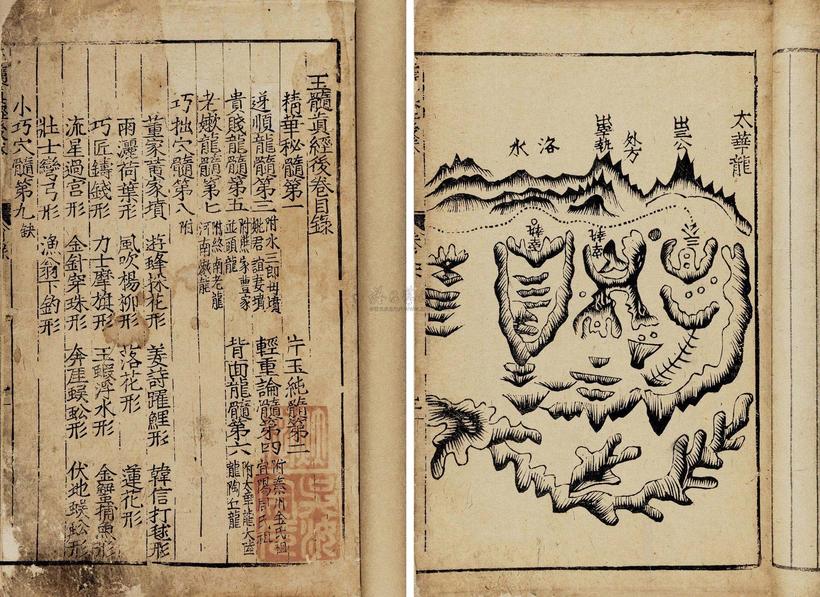 玉髓真經後卷目錄
精華秘髓第一
片玉純髓第二
逆順龍髓第三
附水三郎母墳
姚君誼妻墳
輕重論髓第四
貴賤龍髓第五
附熊家曹家
並頭龍
背面龍髓第六
附太華龍大陸
龍陶丘龍
老嫩龍髓第七
附終南老龍
河南嫩龍
巧拙穴髓第八
附
董家黃家墳
遊蜂採花形
姜詩躍鯉形
韓信打毬形
雨灑荷葉形
風吹楊柳形
落花形
蓮花形
巧匠鑄錢形
力士摩旗形
玉蝦浮水形
流星過宮形
金針穿珠形
奔崖蜈蚣形
伏地蜈蚣形
壯士彎弓形
漁翁下釣形
小巧穴髓第九
缺
太華龍
外方
洛
水